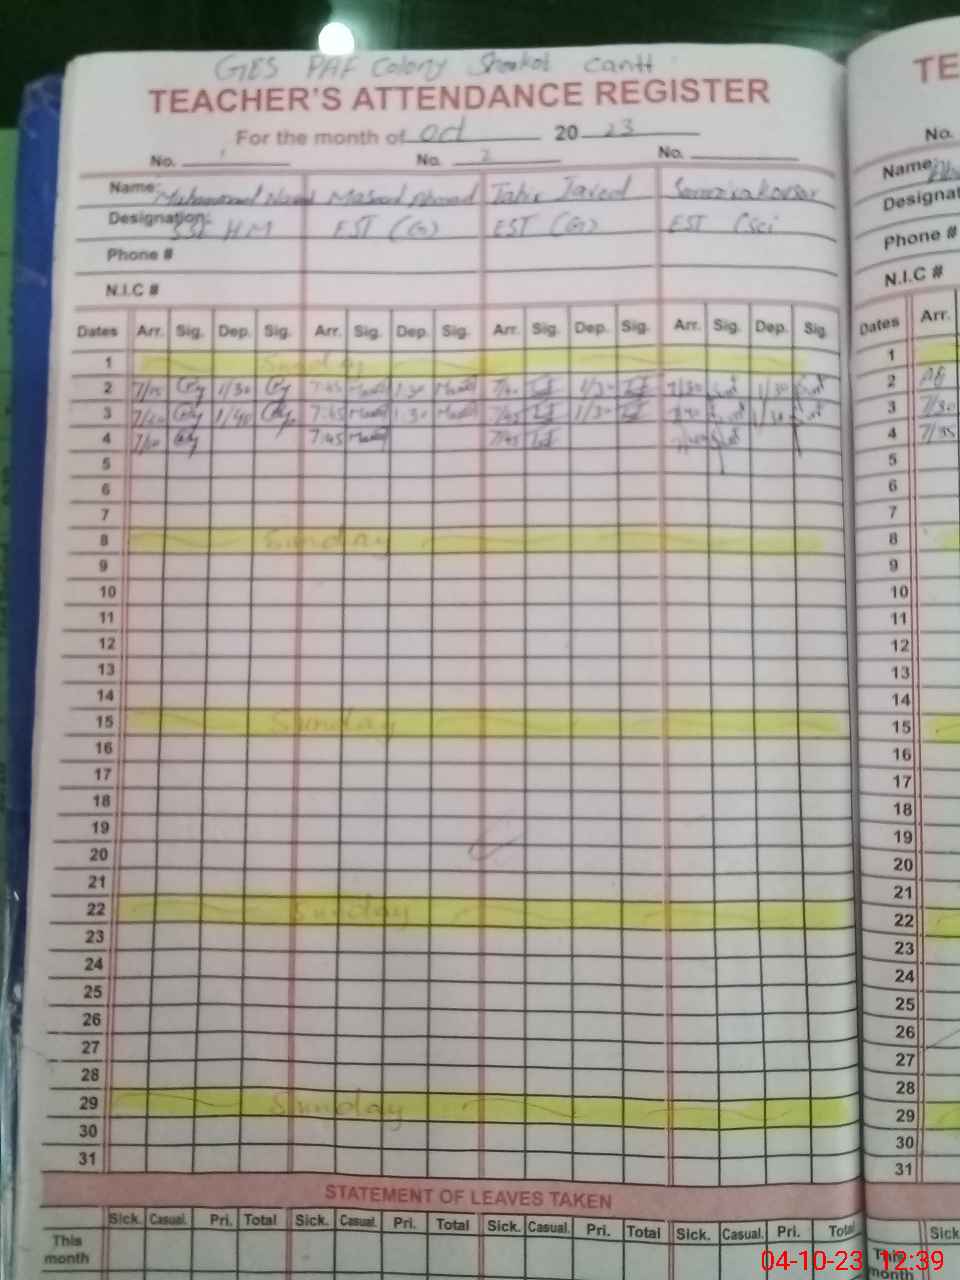 GES PAF Colony Shorkot Cantt
TEACHER'S ATTENDANCE REGISTER
For the month of Oct 2023
No. 1 No. 2 No.
Name: Muhammad Masood Ahmad Tahir Javed
Designation: SSE HM EST (G) EST (G) EST (Sci
Phone #
N.I.C #
Dates Arr. Sig. Dep. Sig. Arr. Sig. Dep. Sig. Arr. Sig. Dep. Sig. Arr. Sig. Dep. Sig.
1 Sunday
2 7/15 1/30 7:45 1:30 1/30 7/30 1/30
3 1/40 7:45 1:30 7/45 1/30
4 7:45 7/45
5
6
7
8 Sunday
9
10
11
12
13
14
15 Sunday
16
17
18
19
20
21
22 Sunday
23
24
25
26
27
28
29 Sunday
30
31
STATEMENT OF LEAVES TAKEN
Sick. Casual. Pri. Total Sick. Casual. Pri. Total Sick. Casual. Pri. Total Sick. Casual. Pri. Total
This
month
TE
No.
Name
Designat
Phone #
N.I.C #
Dates Arr.
1
2
3 7/30
4 7/35
5
6
7
8
9
10
11
12
13
14
15
16
17
18
19
20
21
22
23
24
25
26
27
28
29
30
31
Sick
This
month
04-10-23 12:39